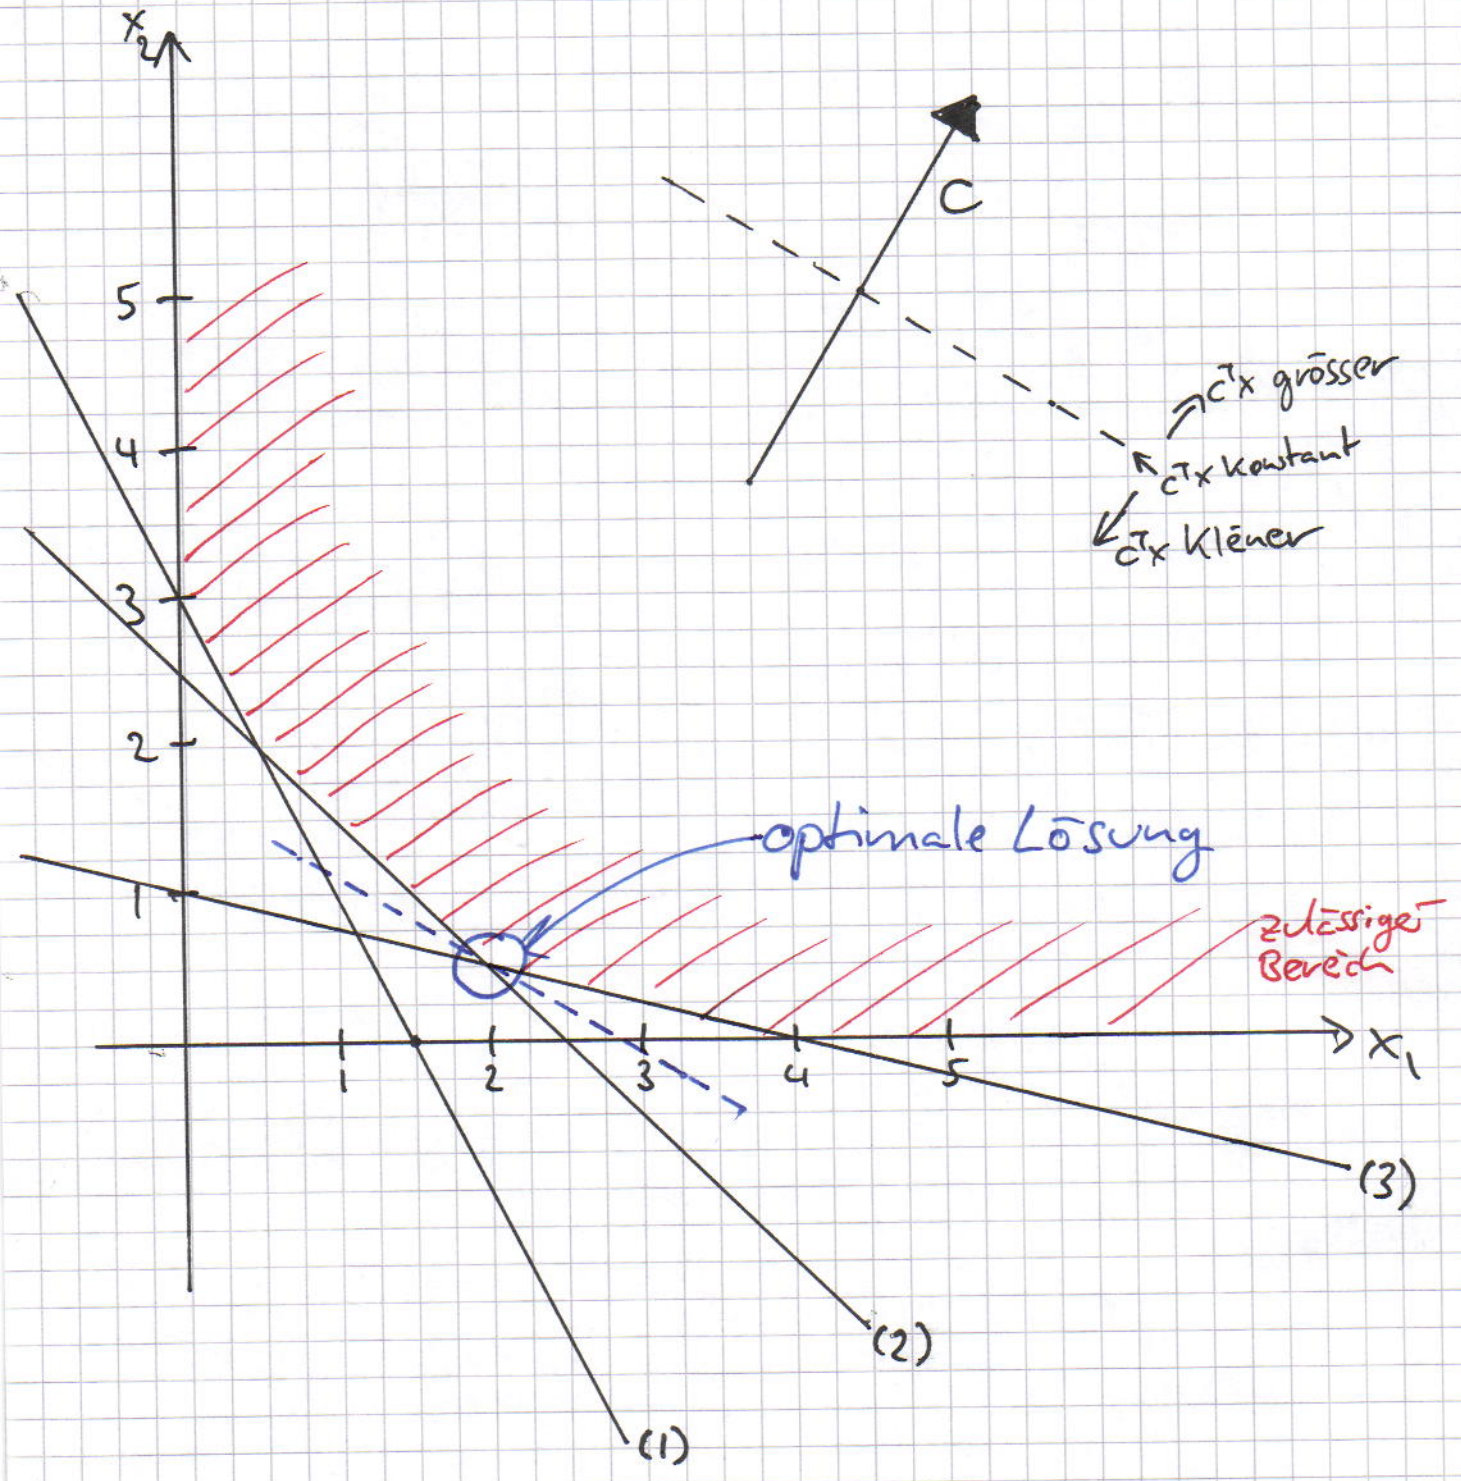 x₂
5
4
3
2
1
1
2
3
4
5
x₁
C
cᵀx grösser
cᵀx konstant
cᵀx kleiner
optimale Lösung
zulässiger
Bereich
(3)
(2)
(1)